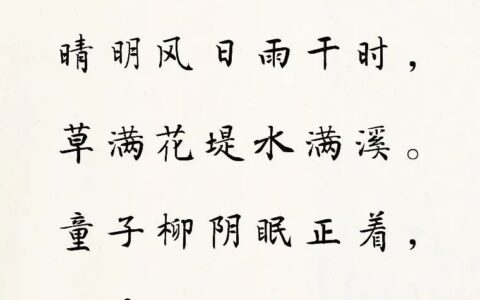 晴明风日雨干时，
草满花堤水满溪。
童子柳阴眠正着，